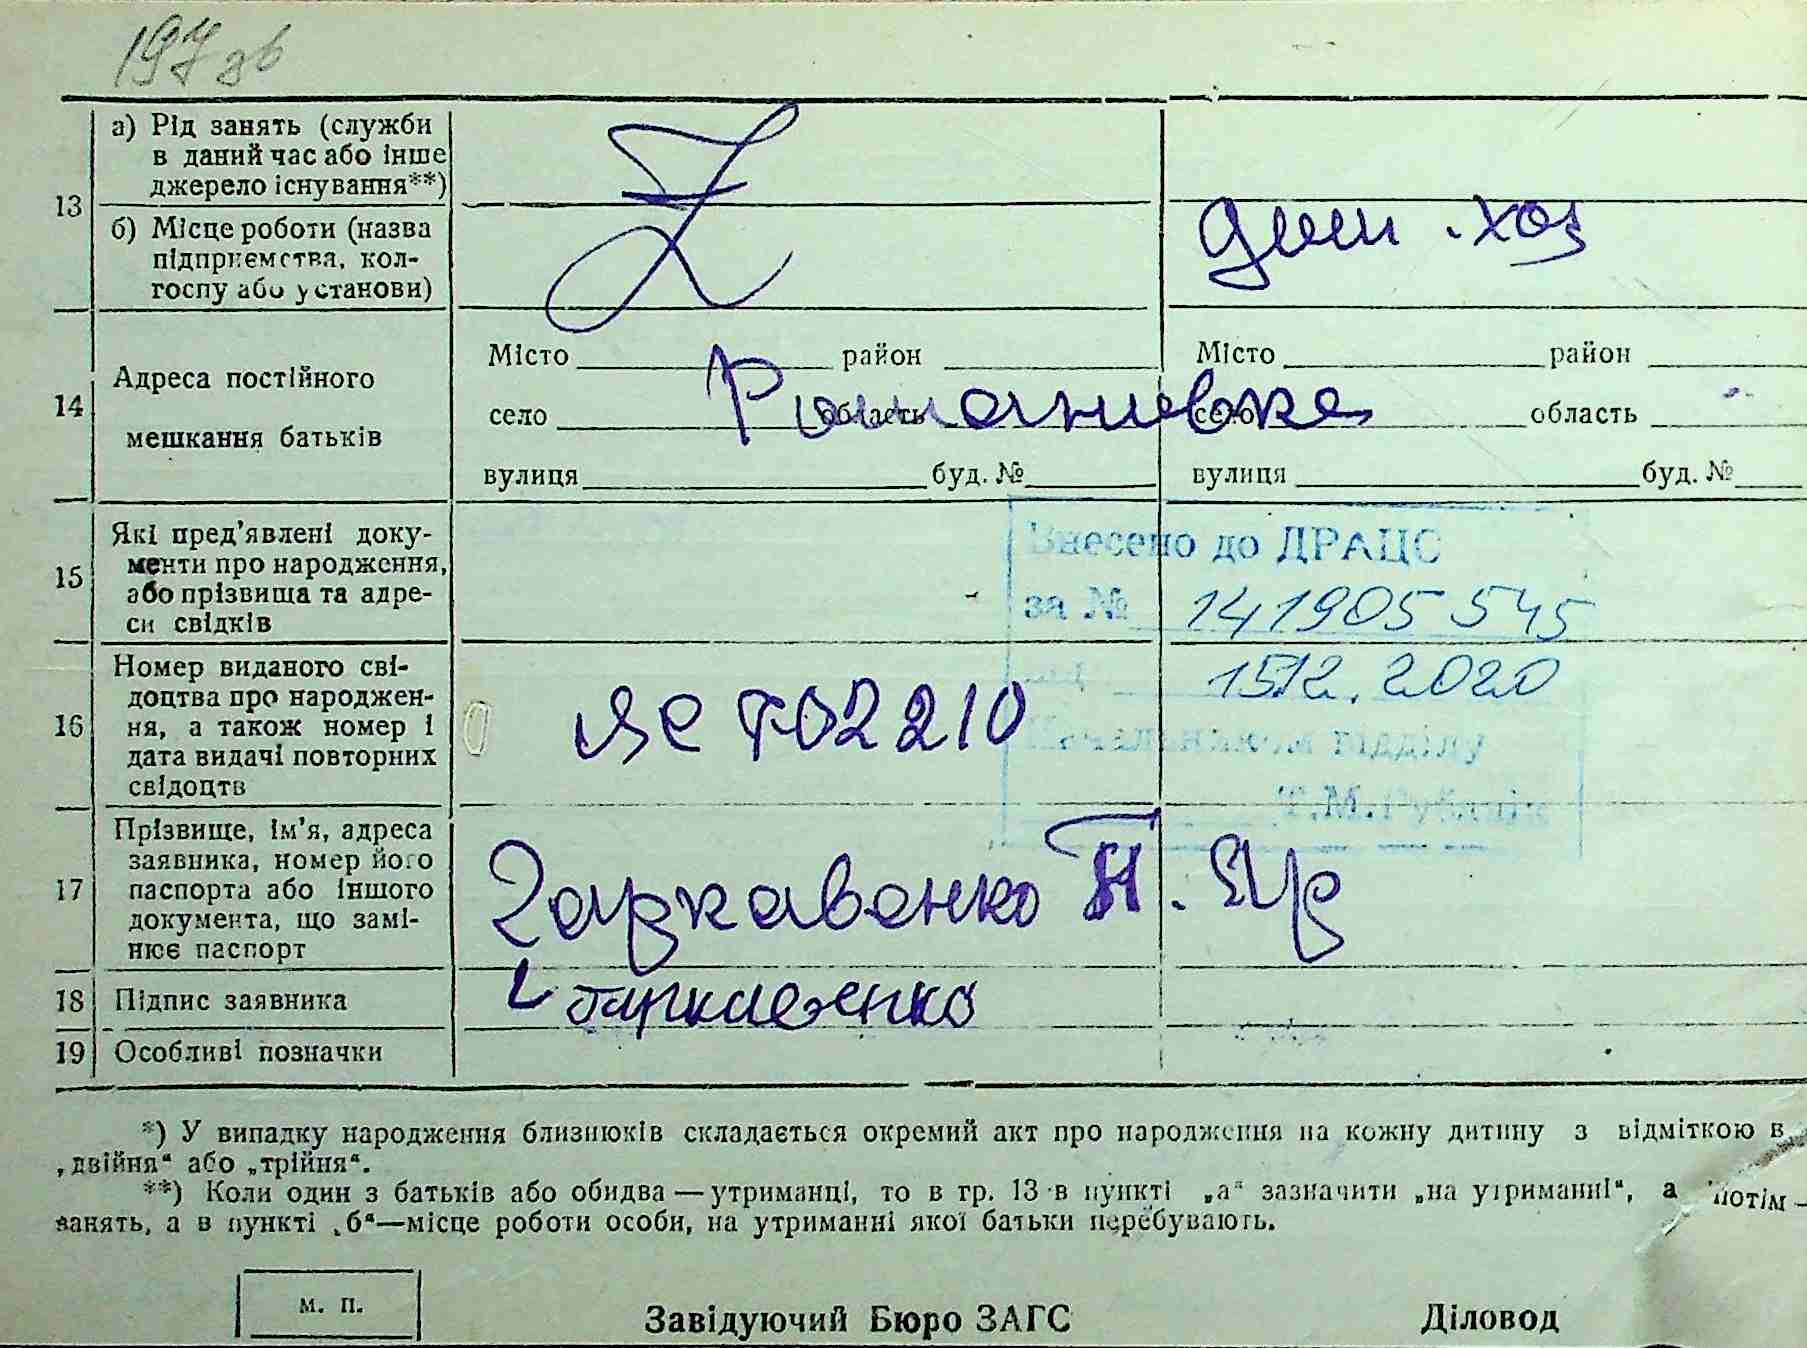 197 зв
13
а) Рід занять (служби
в даний час або інше
джерело існування**)
б) Місце роботи (назва
підприємства, кол-
госпу або установи)
Z
дом. хоз
14
Адреса постійного
мешкання батьків
Місто район Місто район
село область село область
Романивка
вулиця буд. № вулиця буд. №
15
Які пред’явлені доку-
менти про народження,
або прізвища та адре-
си свідків
Внесено до ДРАЦС
за № 141905545
15.12.2020
Начальником відділу
Т.М.
16
Номер виданого сві-
доцтва про народжен-
ня, а також номер і
дата видачі повторних
свідоцтв
ЯС 702210
17
Прізвище, ім’я, адреса
заявника, номер його
паспорта або іншого
документа, що замі-
нює паспорт
Гаркавенко
18
Підпис заявника
Гаркавенко
19
Особливі позначки
*) У випадку народження близнюків складається окремий акт про народження на кожну дитину з відміткою в
„двійня“ або „трійня“.
**) Коли один з батьків або обидва — утриманці, то в гр. 13 в пункті „а“ зазначити „на утриманні“, а потім —
занять, а в пункті „б“ — місце роботи особи, на утриманні якої батьки перебувають.
м. п.
Завідуючий Бюро ЗАГС
Діловод